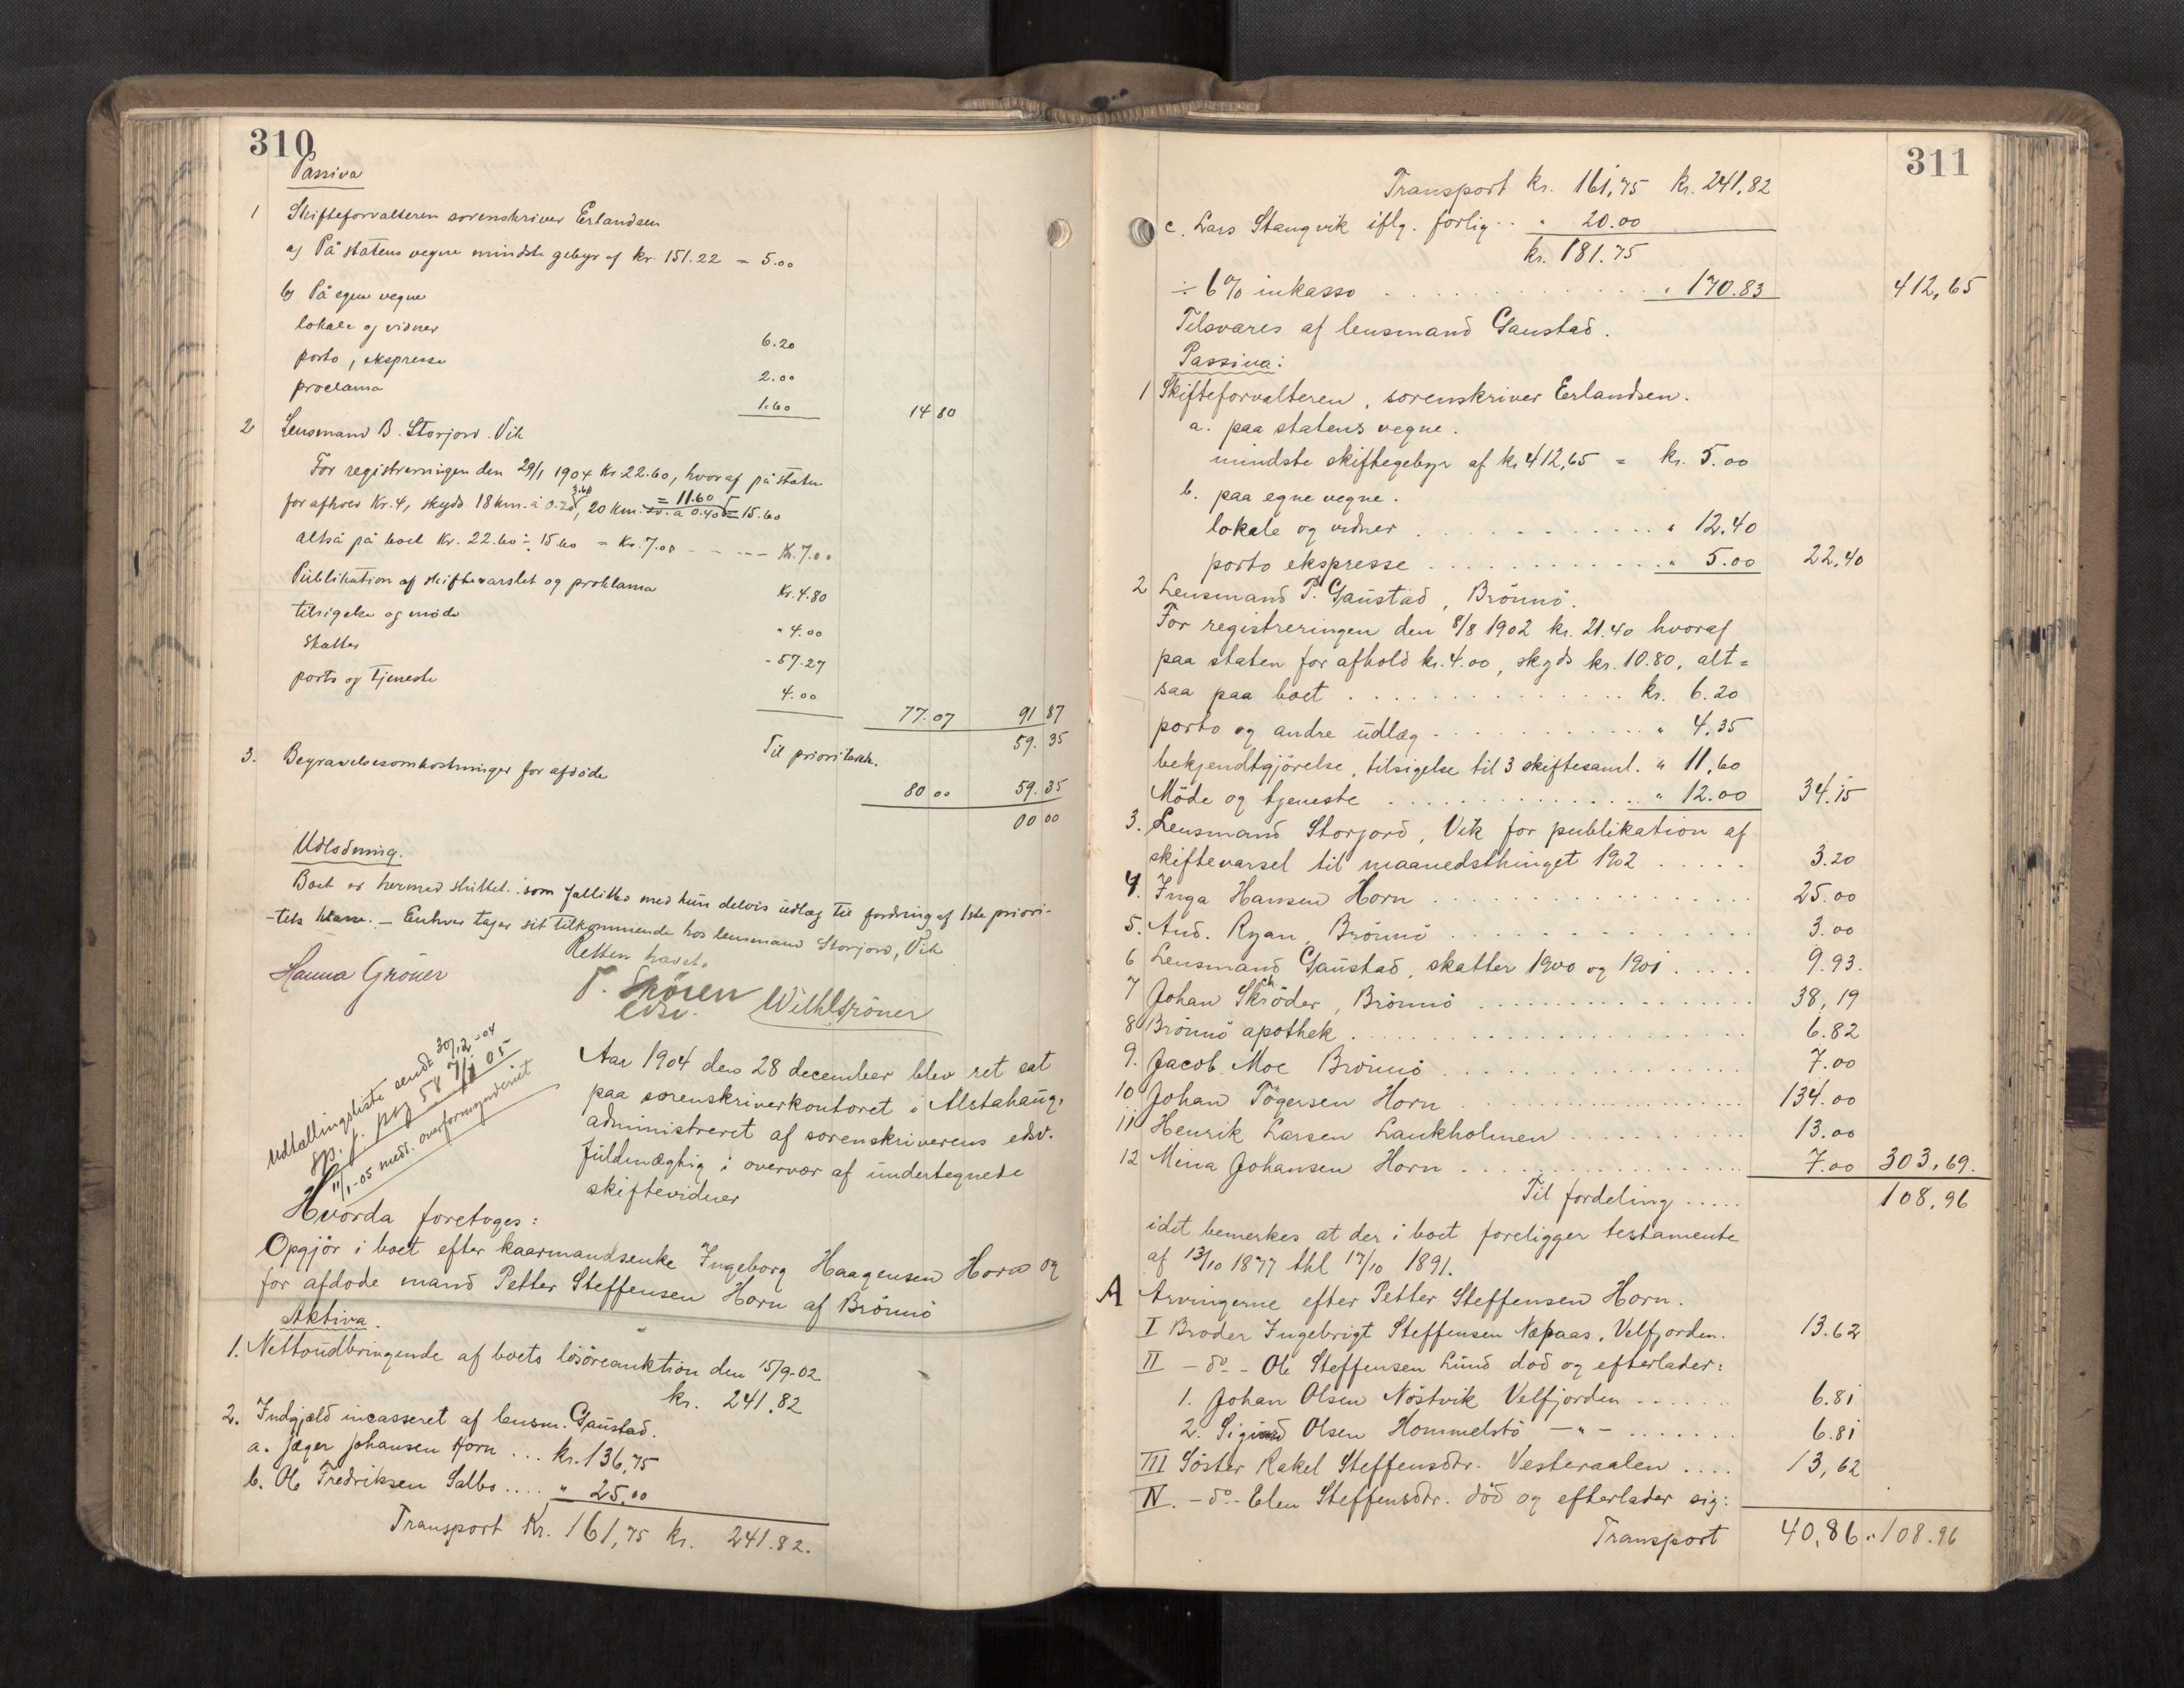 310
Passiva
1 Skifteforvalteren sorenskriver Erlandsen
a) På statens vegne mindste gebyr af kr. 151.22 = 5.00
b) På egne vegne
lokale og vidner 6.20
porto, ekspresse 2.00
proclama 1.60 14 80
2 Lensmand B. Storjord. Vik
For registreringen den 29/1 1904 kr. 22.60, hvoraf på staten
for afhold Kr. 4, skyds 18 km. à 0.20 3.60, 20 km. = 11.60 à 0.40 = 15.60
altså på boet Kr. 22.60 ÷ 15.60 = Kr. 7.00 - - --- Kr. 7.00
Publikation af skiftevarslet og proklama Kr. 4.80
tilsigelse og møde " 4.00
Skatter - 57.27
porto og tjeneste 4.00 77.07 91 87
Til prioritetsk. 59.35
3. Begravelsesomkostninger for afdøde 80 00 59.35
00 00
Udlodning.
Boet er hermed sluttet som fallitbo med kun delvis udlæg til fordring af 1ste priori-
-tets klasse. – Enhver tager sit tilkommende hos lensmand Storjord, Vik
Retten hævet.
Hanna Gröner T. Skören Wilh Gröner
edsv.
Udtallingsliste sendt 30/12-04
Sp. f. pag 58 7/1 05
11/1-05 medd. overformynderiet
Aar 1904 den 28 december blev ret sat
paa sorenskriverkontoret i Alstahaug,
administreret af sorenskriverens edsv.
fuldmægtig i overvær af undertegnede
skiftevidner
Hvorda foretoges:
Opgjör i boet efter kaarmandsenke Ingeborg Haagensen Horn og
for afdøde mand Petter Steffensen Horn af Brönnö
Aktiva.
1. Nettoudbringende af boets lösöreauktion den 15/9-02
kr. 241.82
2. Indgjæld incasseret af lensm. Gaustad.
a. Jæger Johansen Horn ... kr. 136,75
b. Ole Fredriksen Salbo .... " 25.00
Transport Kr. 161,75 kr. 241.82.
311
Transport kr. 161,75 kr. 241,82
c. Lars Stangvik iflg. forlig .. " 20.00
kr. 181.75
÷ 6% inkasso . . . . . " 170.83 412,65
Tilsvares af lensmand Gaustad.
Passiva:
1 Skifteforvalteren, sorenskriver Erlandsen.
a. paa statens vegne.
mindste skiftegebyr af kr 412,65 = kr. 5.00
b. paa egne vegne.
lokale og vidner . . . . . " 12.40
porto ekspresse . . . . . " 5.00 22,40
2 Lensmand P. Gaustad, Brönnö.
For registreringen den 8/8 1902 kr. 21.40 hvoraf
paa staten for afhold kr. 4.00, skyds kr. 10.80, alt=
saa paa boet . . . . . kr. 6.20
porto og andre udlæg . . . . . " 4.35
bekjendtgjörelse, tilsigelse til 3 skiftesaml. " 11,60
Möde og tjeneste . . . . . " 12.00 34.15
3. Lensmand Storjord, Vik for publikation af
skiftevarsel til maanedsthinget 1902 . . . . . 3.20
4. Inga Hansen Horn . . . . . 25.00
5. And. Ryan, Brönnö . . . . . 3.00
6 Lensmand Gaustad, skatter 1900 og 1901 . . . . . 9.93.
7 Johan Schröder, Brönnö . . . . . 38,19
8 Brönnö apothek . . . . . 6.82
9. Jacob Moe Brönnö . . . . . 7.00
10 Johan Tögersen Horn . . . . . 134.00
11 Henrik Larsen Laukholmen . . . . . 13.00
12 Mina Johansen Horn . . . . . 7.00 303,69.
Til fordeling ..... 108,96
idet bemerkes at der i boet foreligger testamente
af 13/10 1877 thl 17/10 1891.
A Arvingerne efter Petter Steffensen Horn.
I Broder Ingebrigt Steffensen Næpaas, Velfjorden. 13.62
II – do – Ole Steffensen Lund död og efterlader:
1. Johan Olsen Nöstvik Velfjorden ...... 6.81
2. Sigvard Olsen Hommelstö – " – ....... 6.81
III Söster Rakel Steffensdtr. Vesteraalen .... 13,62
IV. – do – Elen Steffensdtr. död og efterlader sig:
Transport 40,86 " 108.96